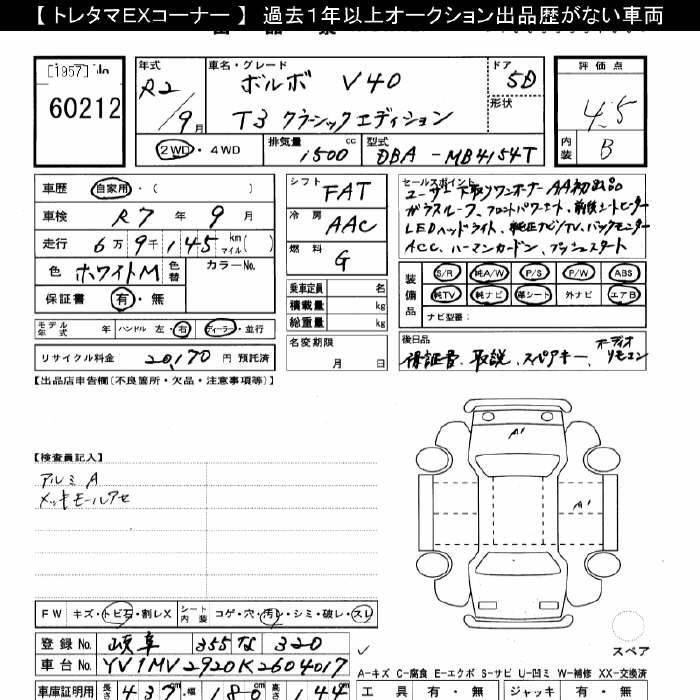 【 トレタマEXコーナー 】 過去１年以上オークション出品歴がない車両
[1957]
60212
年式
R2 / 9 月
車名・グレード
ボルボ V40
T3 クラシックエディション
ドア 5D
形状
評価点
4.5
内装 B
2WD・4WD
排気量 1500 cc
型式 DBA - MB4154T
車歴 自家用・( )
車検 R7 年 9 月
走行 6万9千145 km マイル ( )
色 ホワイトM 色替 カラーNo.
保証書 有・無
モデル年式 年 ハンドル 左・右 ディーラー・並行
リサイクル料金 20,170 円 預託済
シフト FAT
冷房 AAC
燃料 G
乗車定員 名
積載量 kg
総重量 kg
名変期限
月 日
セールスポイント
ユーザー下取りワンオーナー AA初出品
ガラスルーフ、フロントパワーシート、前後シートヒーター
LEDヘッドライト、純正ナビ/TV、バックモニター
ACC、ハーマンカードン、プッシュスタート
装備品
S/R 純A/W P/S P/W ABS
純TV 純ナビ 革シート 外ナビ エアB
ナビ型番：
後日品
保証書、取説、スペアキー、オーディオリモコン
【出品店申告欄(不良箇所・欠品・注意事項等)】
【検査員記入】
アルミ A
メッキモールアセ
A1
A1
FW キズ・トビ石・割レX
シート内装 コゲ・穴・汚レ・シミ・破レ・スレ
登録 No. 岐阜 355 な 320
車台 No. YV1MV2920K2604017
車庫証明用 長さ 437 cm 幅 180 cm 高さ 144 cm
スペア
A-キズ C-腐食 E-エクボ S-サビ U-凹ミ W-補修 XX-交換済
工具 有・無 ジャッキ 有・無